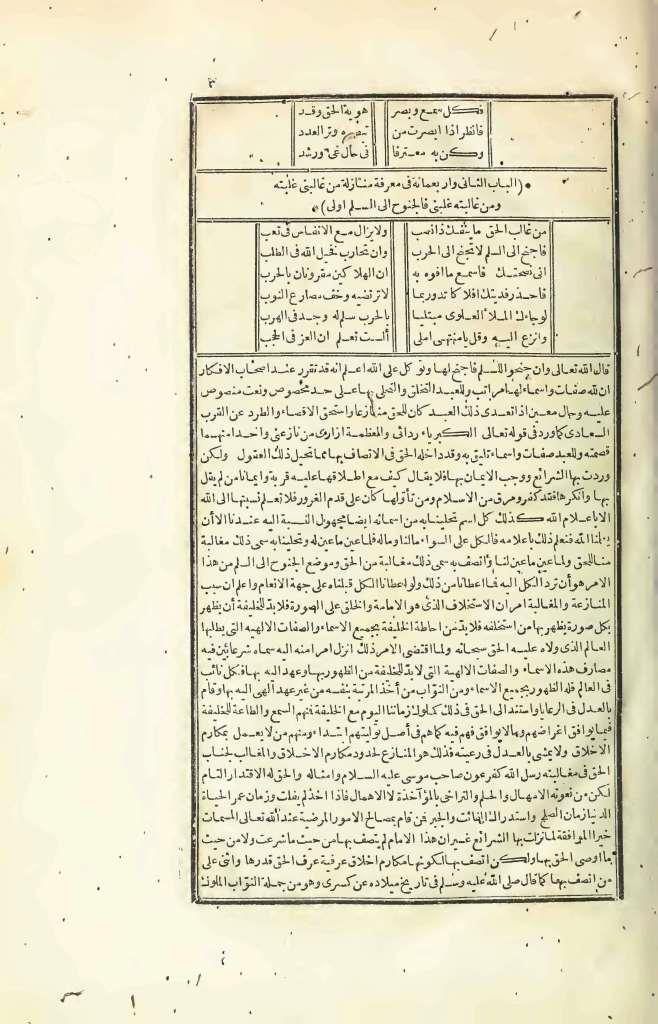 ٣
فكل سمع وبصر هوية الحق وقد
فانظر اذا ابصرت من تبصره وتر العدد
وكن به معترفا فى حال غى ورشد
(الباب الثانى واربعمائة فى معرفة منازلة من غالبنى غلبته
ومن غالبته غلبنى فالجنوح الى السلم اولى)
من غالب الحق ما ينفك ذا نصب ولا يزال مع الانفاس فى تعب
فاجنح الى السلم لا تجنح الى الحرب وان تحارب فخيل الله فى الطلب
انى نصحتك فاسمع ما افوه به ان الهلاكين مقرونان بالحرب
فاحذر فديتك افلاكا تدور بما لا ترتضيه وخف مصارع النوب
لو جاءك الملأ العلوى مبتليا بالحرب سلم له وجد فى الهرب
وانزع اليه وقل يا منتهى املى ألست تعلم ان العز فى الحجب
قال الله تعالى وان جنحوا للسلم فاجنح لها وتوكل على الله اعلم انه قد تقرر عند اصحاب الافكار
ان لله صفات واسماء لها مراتب وللعبد التخلق والتحلى بها على حد مخصوص ونعت منصوص
عليه وحال معين اذا تعدى ذلك العبد كان للحق منازعا واستحق الاقصاء والطرد عن القرب
السعادى كما ورد فى قوله تعالى الكبرياء ردائى والعظمة ازارى من نازعنى واحدا منهما
قصمته وللعبد صفات واسماء تليق به وقد داخله الحق فى الاتصاف بها مما تحيل ذلك العقول ولكن
وردت بها الشرائع ووجب الايمان بها فلا يقال كيف مع اطلاقها عليه قربة وايمانا من لم يقل
بها وانكرها فقد كفر ومرق من الاسلام ومن تأولها كان على قدم الغرور فلا تعلم نسبتها الى الله
الا باعلام الله كذلك كل اسم تحلينا به من اسمائه ايضا مجهول النسبة اليه عندنا الا أن
يعلمنا الله فنعلم ذلك باعلامه فالكل على السواء مالنا وماله فلما عين ما عين له وتحلينا به سمى ذلك مغالبة
منا للحق ولما عين ما عين لنا واتصف به سمى ذلك مغالبة من الحق وموضع الجنوح الى السلم من هذا
الامر هو أن ترد الكل اليه فما اعطانا من ذلك ولو اعطانا الكل قبلناه على جهة الانعام واعلم ان سبب
المنازعة والمغالبة امران الاستخلاف الذى هو الامامة والخلق على الصورة فلا بد للخليفة أن يظهر
بكل صورة يظهر بها من استخلفه فلا بد من احاطة الخليفة بجميع الاسماء والصفات الالهية التى يطلبها
العالم الذى ولاه عليه الحق سبحانه ولما اقتضى الامر ذلك انزل امرا منه اليه سماه شرعا بين فيه
مصارف هذه الاسماء والصفات الالهية التى لا بد للخليفة من الظهور بها وعهد اليه بها فكل نائب
فى العالم فله الظهور بجميع الاسماء ومن النواب من أخذ المرتبة بنفسه من غير عهد الهى اليه بها وقام
بالعدل فى الرعايا واستند الى الحق فى ذلك كملوك زماننا اليوم مع الخليفة فمنهم السمع والطاعة للخليفة
فيما يوافق اغراضهم وما لا يوافق فهم فيه كما هم فى أصل توليتهم ابتداء ومنهم من لا يعمل بمكارم
الاخلاق ولا يمشى بالعدل فى رعيته فذلك هو المنازع لحدود مكارم الاخلاق والمغالب لجناب
الحق فى مغالبته رسل الله كفرعون صاحب موسى عليه السلام وامثاله والحق له الاقتدار التام
لكن من نعوته الامهال والحلم والتراخى بالمؤاخذة لا الاهمال فاذا اخذ لم يفلت وزمان عمر الحياة
الدنيا زمان الصلح واستدراك الفائت والجبر فمن قام بمصالح الامور المرضية عند الله تعالى المسمات
خيرا الموافقة لما نزلت بها الشرائع غير ان هذا الامام لم يتصف بها من حيث ما شرعت ولا من حيث
ما اوصى الحق بها ولكن اتصف بها لكونها مكارم اخلاق عرفية عرف الحق قدرها واثنى على
من اتصف بها كما قال صلى الله عليه وسلم فى تاريخ ميلاده عن كسرى وهو من جملة النواب الملوك